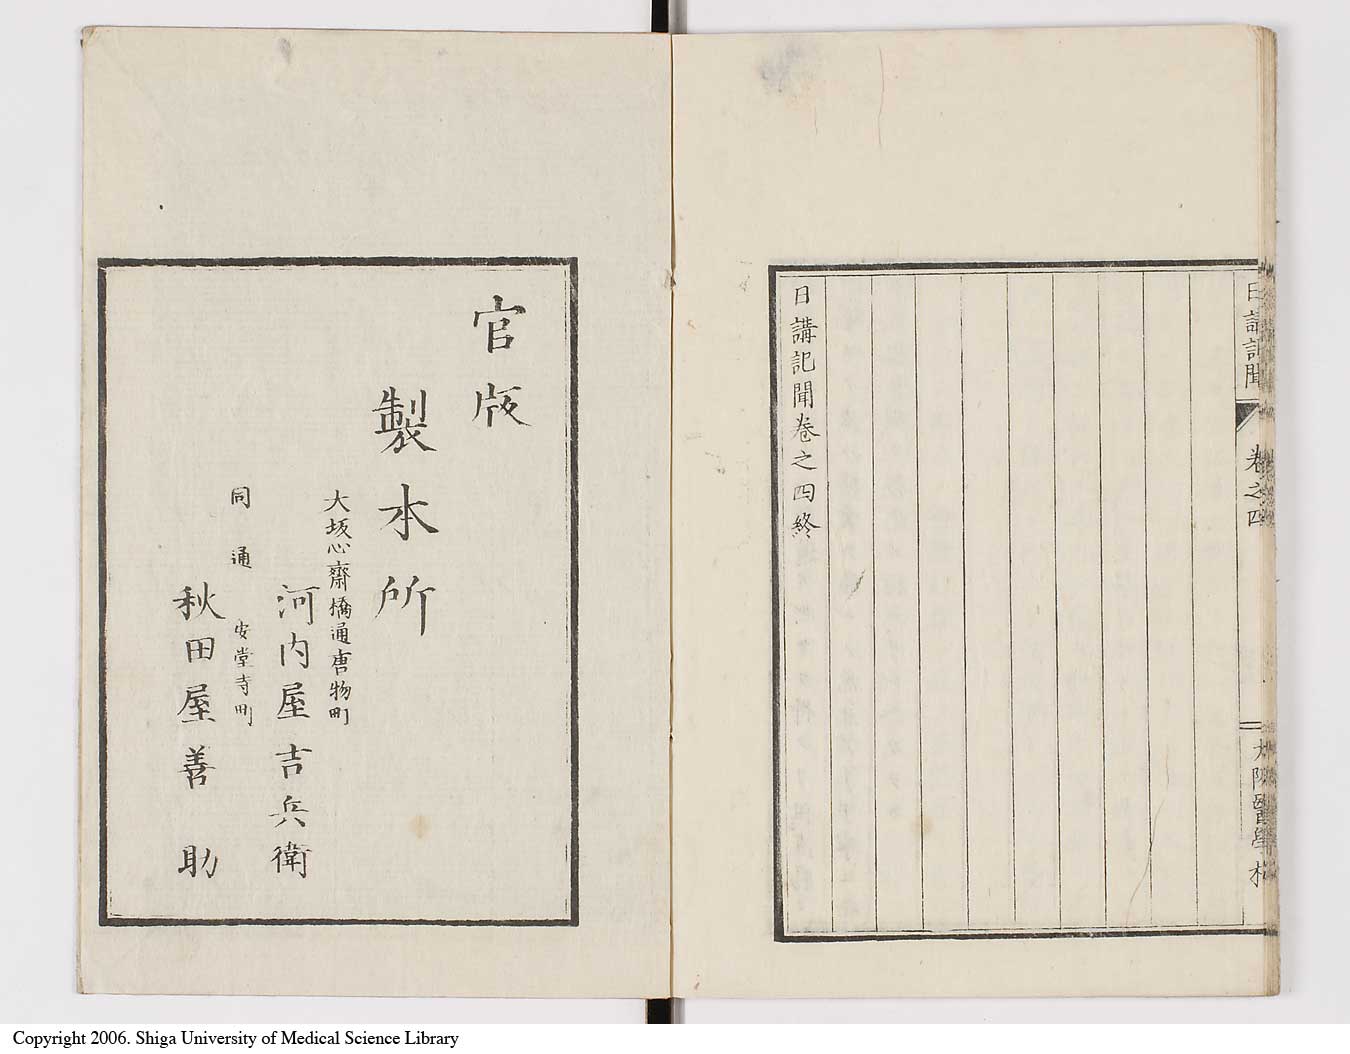 日講記聞
卷之四
大阪醫學校
日講記聞卷之四終
官版
製本所
大坂心齋橋通唐物町
河内屋吉兵衛
同通安堂寺町
秋田屋善助
Copyright 2006. Shiga University of Medical Science Library